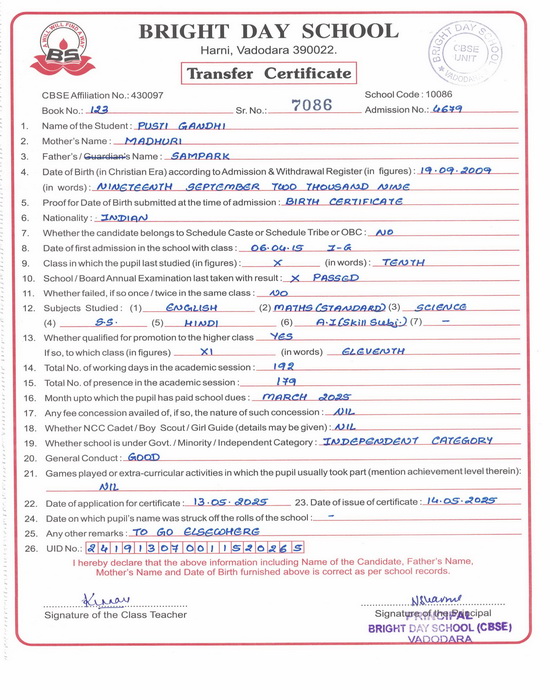 A WILL WILL FIND A WAY
BS
BRIGHT DAY SCHOOL
Harni, Vadodara 390022.
BRIGHT DAY SCHOOL
CBSE UNIT
VADODARA
Transfer Certificate
CBSE Affiliation No.: 430097 School Code : 10086
Book No.: 123 Sr. No.: 7086 Admission No.: 4679
1. Name of the Student : PUSTI GANDHI
2. Mother's Name : MADHURI
3. Father's / Guardian's Name : SAMPARK
4. Date of Birth (in Christian Era) according to Admission & Withdrawal Register (in figures) : 19.09.2009
(in words) : NINETEENTH SEPTEMBER TWO THOUSAND NINE
5. Proof for Date of Birth submitted at the time of admission : BIRTH CERTIFICATE
6. Nationality : INDIAN
7. Whether the candidate belongs to Schedule Caste or Schedule Tribe or OBC : NO
8. Date of first admission in the school with class : 06.04.15 I-G
9. Class in which the pupil last studied (in figures) : X (in words) : TENTH
10. School / Board Annual Examination last taken with result : X PASSED
11. Whether failed, if so once / twice in the same class : NO
12. Subjects Studied : (1) ENGLISH (2) MATHS (STANDARD) (3) SCIENCE
(4) S.S. (5) HINDI (6) A.I (Skill Subj.) (7) –
13. Whether qualified for promotion to the higher class YES
If so, to which class (in figures) XI (in words) ELEVENTH
14. Total No. of working days in the academic session : 192
15. Total No. of presence in the academic session : 179
16. Month upto which the pupil has paid school dues : MARCH 2025
17. Any fee concession availed of, if so, the nature of such concession : NIL
18. Whether NCC Cadet / Boy Scout / Girl Guide (details may be given) : NIL
19. Whether school is under Govt. / Minority / Independent Category : INDEPENDENT CATEGORY
20. General Conduct : GOOD
21. Games played or extra-curricular activities in which the pupil usually took part (mention achievement level therein) :
NIL
22. Date of application for certificate : 13.05.2025 23. Date of issue of certificate : 14.05.2025
24. Date on which pupil's name was struck off the rolls of the school : –
25. Any other remarks : TO GO ELSEWHERE
26. UID No.: 241913070011520265
I hereby declare that the above information including Name of the Candidate, Father's Name,
Mother's Name and Date of Birth furnished above is correct as per school records.
Signature of the Class Teacher Signature of the Principal
PRINCIPAL
BRIGHT DAY SCHOOL (CBSE)
VADODARA